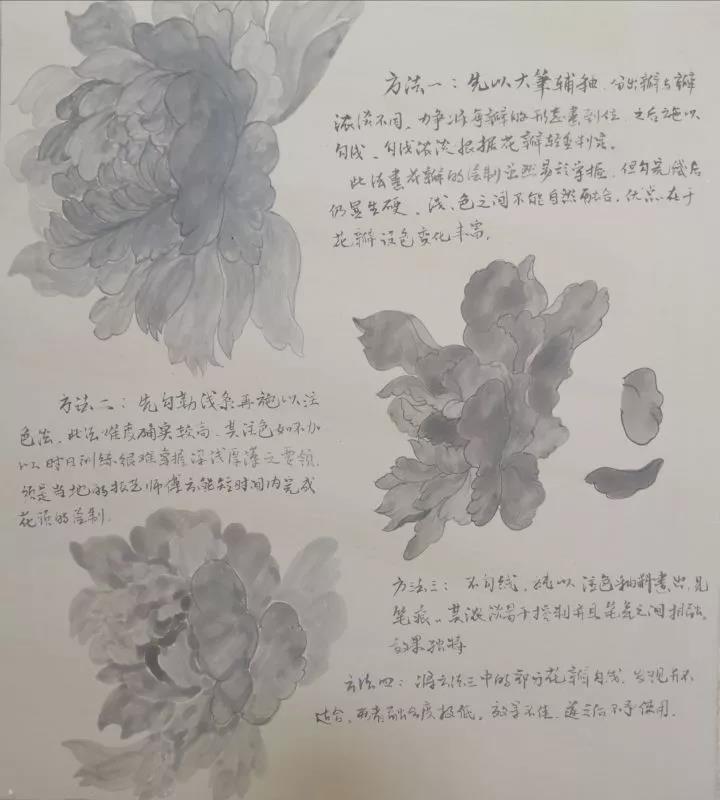 方法一：先以大筆铺釉，分出瓣与瓣
浓淡不同，力争将每瓣的形态畫到位，之后施以
勾线，勾线浓淡根据花瓣轻重判定。
此法畫花瓣的绘制虽然易于掌握，但勾完线后
仍显生硬，线、色之间不能自然融合，优点在于
花瓣设色变化丰富。
方法二：先勾勒线条再施以注
色法，此法难度确实较高，其注色如不加
以时日训练很难掌握深浅厚薄之要领，
须是当地的技艺师傅方能短时间内完成
花头的绘制。
方法三：不勾线，纯以注色釉料畫出，见
笔痕，其浓淡易于控制并且笔与笔之间相融，
效果独特
方法四：将方法三中的部分花瓣勾线，发现并不
适合，两者融合度极低，效果不佳，遂之后不予使用。